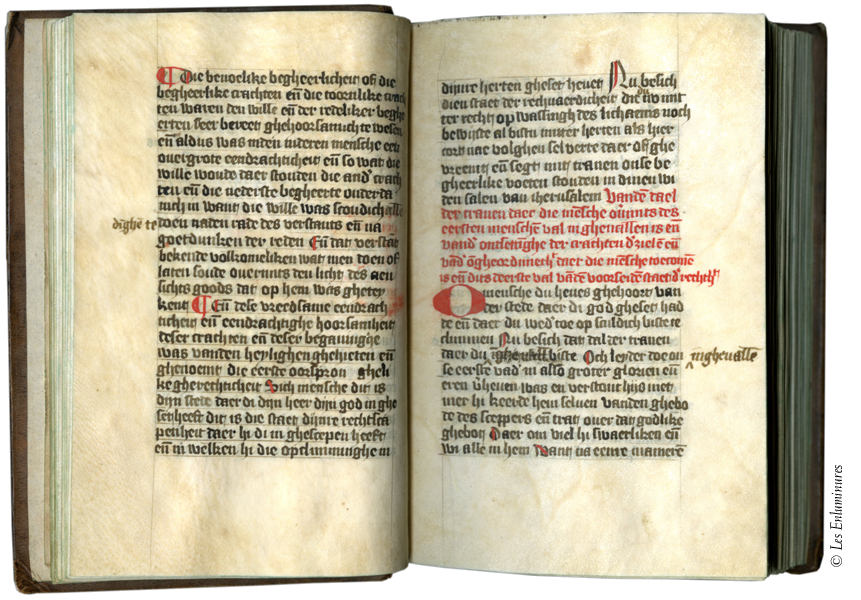 Die beuoelike begheerlicheit ofte die
begheerlike crachten en̄ die toornlike crach
ten waren den wille en̄ der redeliker begh
erten seer bereet ghehoorsamich te wesen
en̄ aldus was inden inderen mensche een
ouergrote eendrachticheit en̄ so wat die
wille woude daer stonden die and' crach
ten en̄ die nederste begheerte onderda
nich in want die wille was scoudich alle
dīghē te doen naden rade des verstants en̄ na
goetdunken der reden En̄ dat verstāt
bekende volkomeliken wat men doen of
laten soude ouermits den licht des aen
sichts goods dat op hem was ghetey
kent En̄ dese vreedsame eendrach
ticheit en̄ eendrachtighe hoorsamheit
deser crachten en̄ deser begauinghe
was vanden heylighen ghehieten en̄
ghenoemt die eerste oorspron gheli
ke gherechticheit Sich mensche dit is
dijn stede daer di dijn heer dijn god in ghe
set heeft dit is die staet dijnre rechtsca
penheit daer hi di in ghescepen heeft
en̄ in welken hi die opclimminghe in
dijnre herten gheset heuet Nu besich
dien staet der rechuaerdicheit die du nv mit
ter recht op wassingh des lichaems noch
bewijste al bistu mitter herten als hier
coort nae volghen sel verre daer off ghe
vreemt en̄ segt mit tranen onse be
gheerlike voeten stonden in dinen wi
den salen van iherusalem Vandē dael
der tranen daer die mēsche ouīmits des
eersten menschē val in gheuallen is en̄
vand' ontsetinghe der crachten d' ziele en̄
vād' ōngheordineth' daer die mēsche toe comē
is en̄ dits deerste val vādē voorseidē staet d' rechth'
O mensche du heues ghehoort van
der stede daer di god gheset had
de en̄ daer du wed' toe op sculdich biste te
clummen Nu besich dat dal der tranen
daer du īgheuall biste Och leyder doe on īngheuallē
se eerste vad' in also groter glorien en̄
eren v'heuen was en verstont hijs niet
mer hi keerde hem seluen vanden ghebo
te des sceppers en̄ trat ouer dat godlike
ghebot Daer om viel hi swaerliken en̄
wi alle in hem Want na eenre manierē
© Les Enluminures